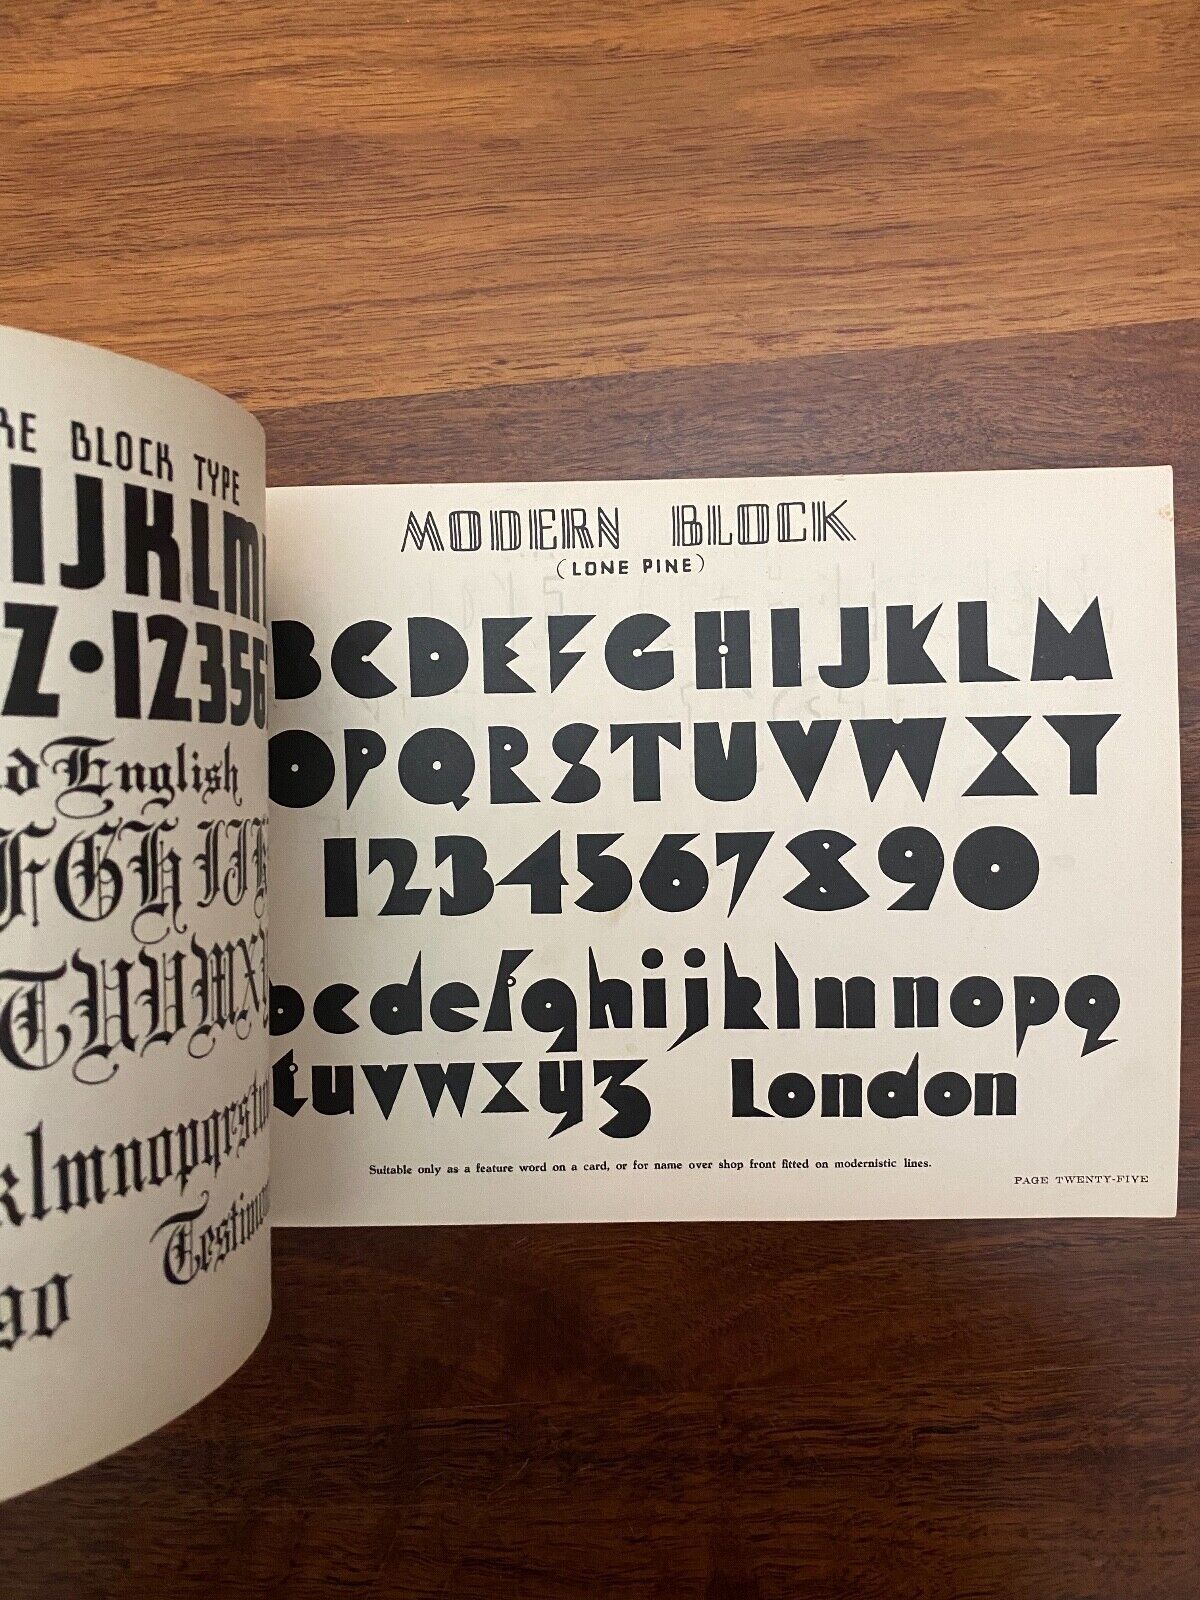 RE BLOCK TYPE
IJKLM
Z•12356
d English
FGHIJK
TUVWX
klmnopqrstu
Testimon
90
MODERN BLOCK
(LONE PINE)
BCDEFGHIJKLM
OPQRSTUVWXY
1234567890
bcdefghijklmnopq
tuvwxyz London
Suitable only as a feature word on a card, or for name over shop front fitted on modernistic lines.
PAGE TWENTY-FIVE